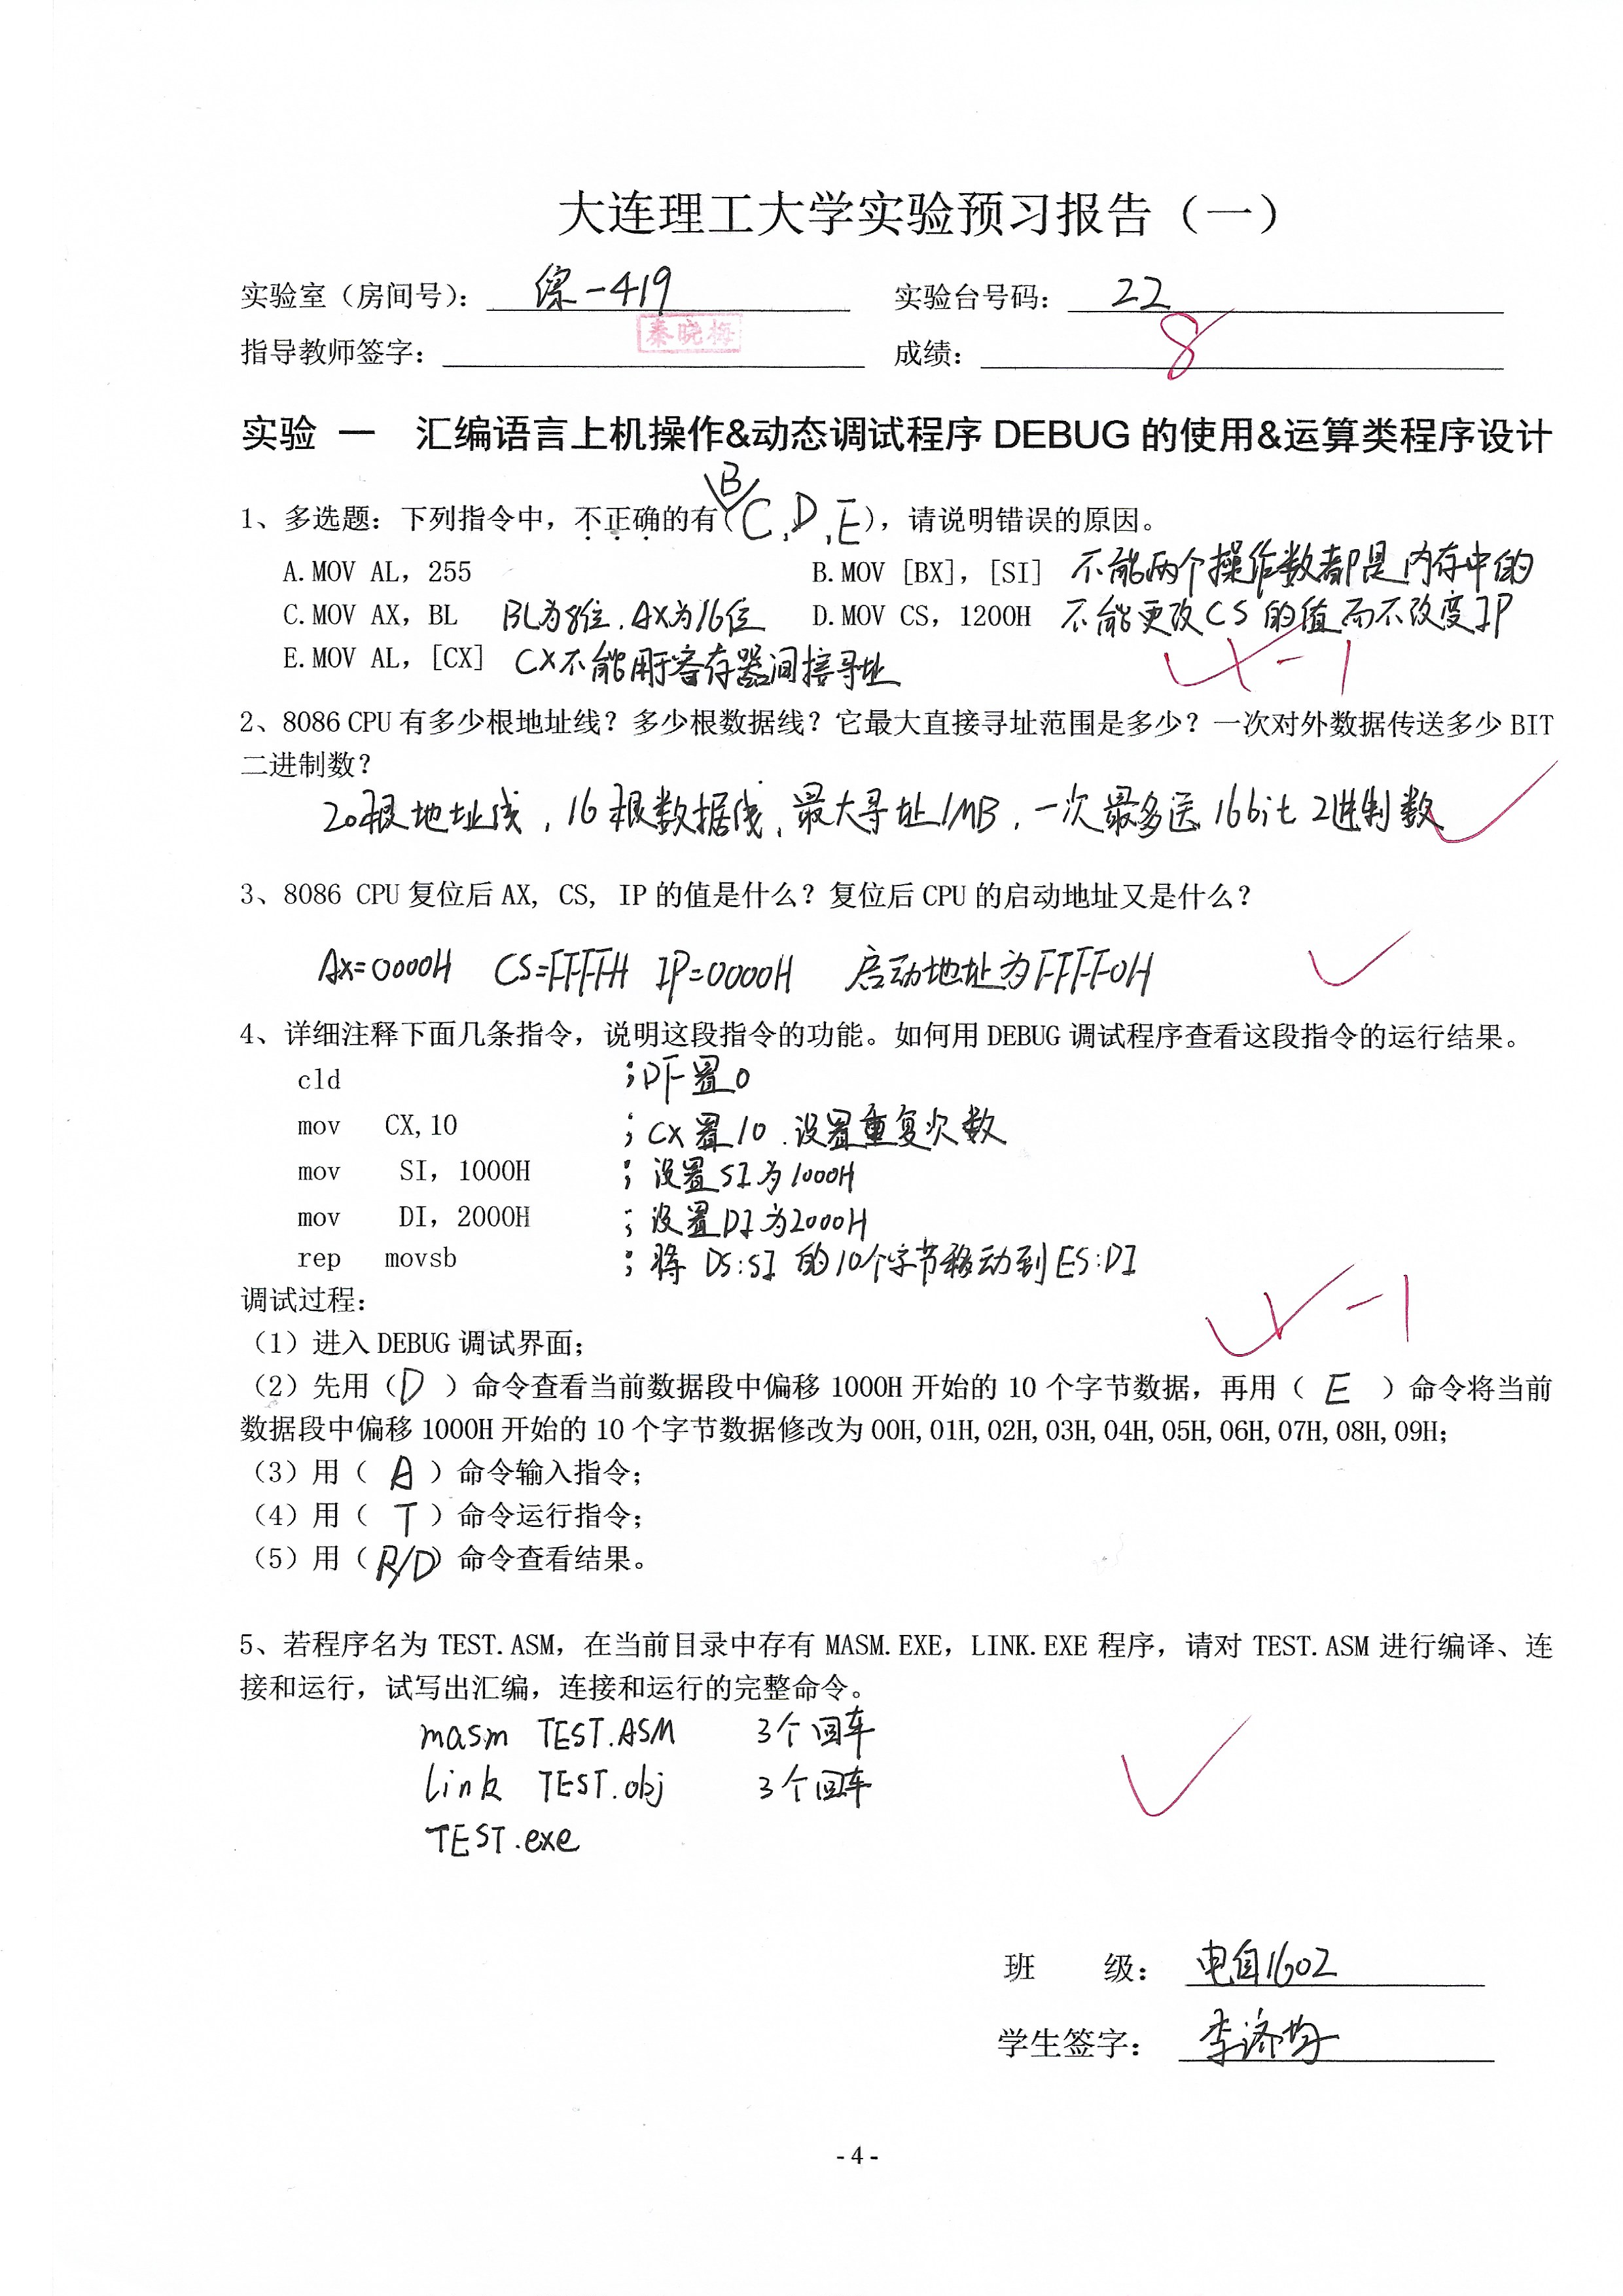 大连理工大学实验预习报告（一）
实验室（房间号）： 综-419 实验台号码： 22
指导教师签字： 秦晓梅 成绩： 8
实验 一 汇编语言上机操作&动态调试程序 DEBUG 的使用&运算类程序设计
1、多选题：下列指令中，不正确的有（B C, D, E），请说明错误的原因。
A.MOV AL，255 B.MOV [BX]，[SI] 不能两个操作数都是内存中的
C.MOV AX，BL BL为8位，AX为16位 D.MOV CS，1200H 不能更改CS的值而不改变IP
E.MOV AL，[CX] CX不能用于寄存器间接寻址
-1
2、8086 CPU 有多少根地址线？多少根数据线？它最大直接寻址范围是多少？一次对外数据传送多少 BIT
二进制数？
20根地址线，16根数据线，最大寻址1MB，一次最多送16bit 2进制数
3、8086 CPU 复位后 AX, CS, IP 的值是什么？复位后 CPU 的启动地址又是什么？
AX=0000H CS=FFFFH IP=0000H 启动地址为FFFF0H
4、详细注释下面几条指令，说明这段指令的功能。如何用 DEBUG 调试程序查看这段指令的运行结果。
cld ;DF置0
mov CX,10 ;CX置10.设置重复次数
mov SI，1000H ;设置SI为1000H
mov DI，2000H ;设置DI为2000H
rep movsb ;将 DS:SI 的10个字节移动到ES:DI
调试过程：
-1
（1）进入 DEBUG 调试界面；
（2）先用（D ）命令查看当前数据段中偏移 1000H 开始的 10 个字节数据，再用（ E ）命令将当前
数据段中偏移 1000H 开始的 10 个字节数据修改为 00H,01H,02H,03H,04H,05H,06H,07H,08H,09H；
（3）用（ A ）命令输入指令；
（4）用（ T ）命令运行指令；
（5）用（R/D）命令查看结果。
5、若程序名为 TEST.ASM，在当前目录中存有 MASM.EXE，LINK.EXE 程序，请对 TEST.ASM 进行编译、连
接和运行，试写出汇编，连接和运行的完整命令。
masm TEST.ASM 3个回车
link TEST.obj 3个回车
TEST.exe
班 级： 电自1602
学生签字： 李济
- 4 -